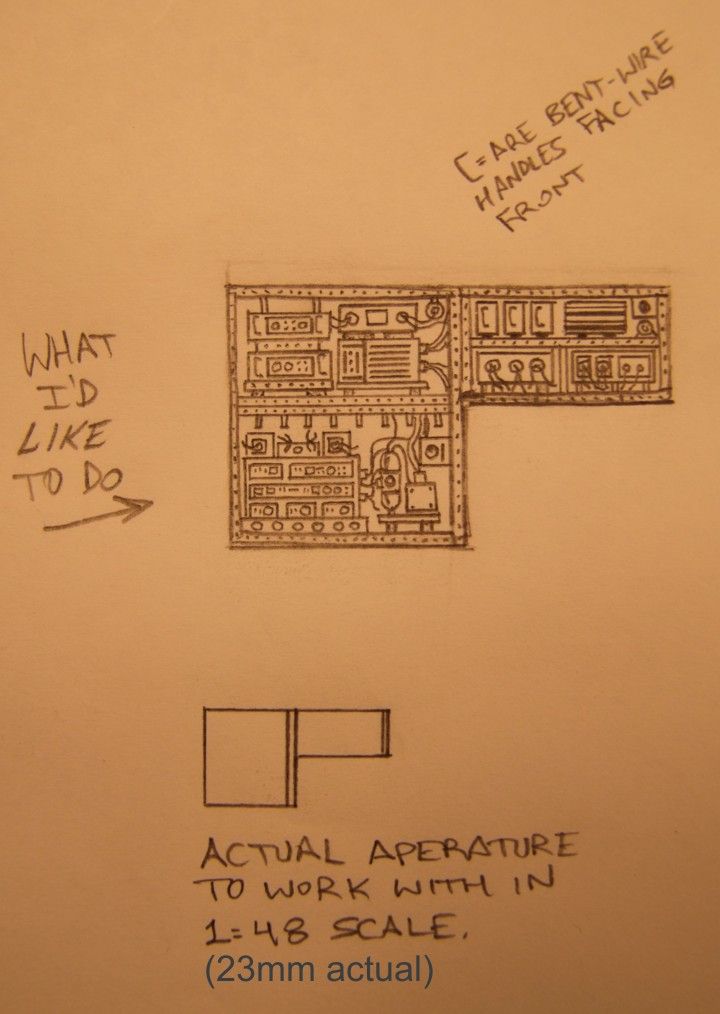 [=ARE BENT-WIRE
HANDLES FACING
FRONT
WHAT
I'D
LIKE
TO DO
ACTUAL APERATURE
TO WORK WITH IN
1=48 SCALE.
(23mm actual)